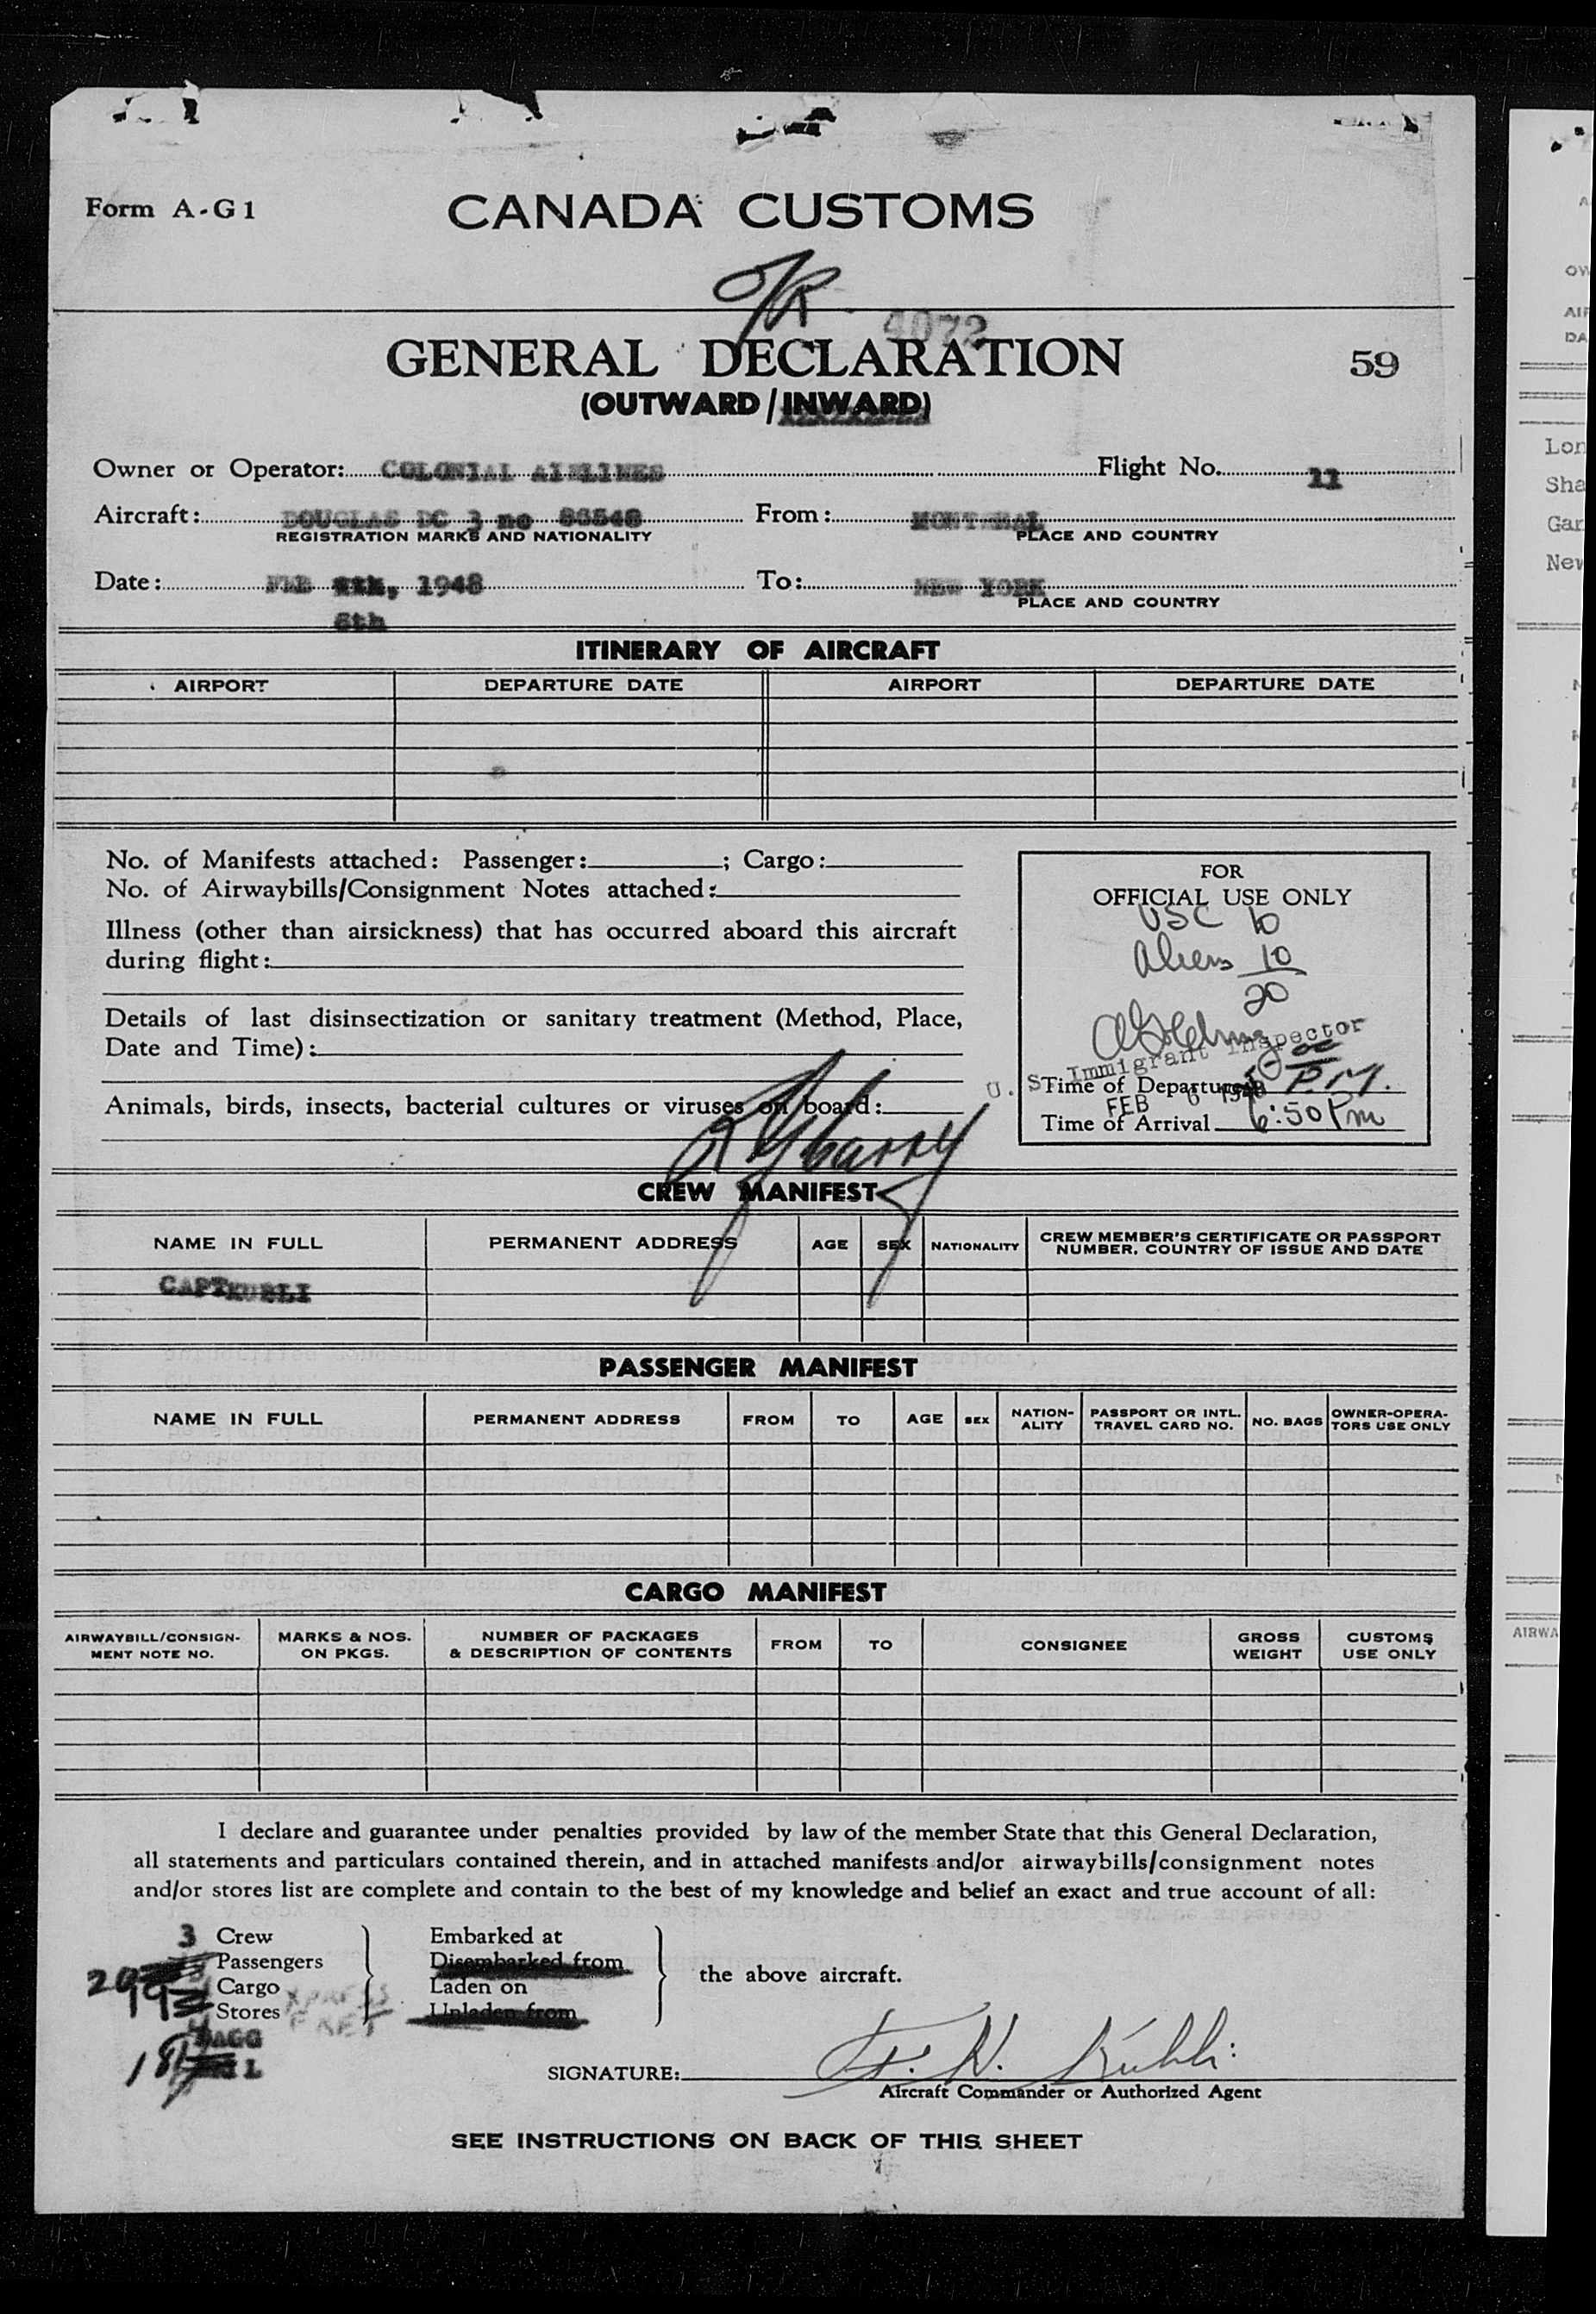 Form A-G1
CANADA CUSTOMS
4072
GENERAL DECLARATION
59
(OUTWARD/INWARD)
Owner or Operator: COLONIAL AIRLINES Flight No. 11
Aircraft: DOUGLAS DC 3 no 86548 From: MONTREAL
REGISTRATION MARKS AND NATIONALITY PLACE AND COUNTRY
Date: FEB 1948 To: NEW YORK
6th PLACE AND COUNTRY
ITINERARY OF AIRCRAFT
AIRPORT DEPARTURE DATE AIRPORT DEPARTURE DATE
No. of Manifests attached: Passenger: ; Cargo:
No. of Airwaybills/Consignment Notes attached:
Illness (other than airsickness) that has occurred aboard this aircraft
during flight:
Details of last disinsectization or sanitary treatment (Method, Place,
Date and Time):
Animals, birds, insects, bacterial cultures or viruses on board:
FOR
OFFICIAL USE ONLY
USC 10
Aliens 10
20
U. S. Immigrant Inspector
Time of Departure P.M.
FEB 6 1948
Time of Arrival 6:50 Pm
CREW MANIFEST
NAME IN FULL PERMANENT ADDRESS AGE SEX NATIONALITY CREW MEMBER'S CERTIFICATE OR PASSPORT
NUMBER, COUNTRY OF ISSUE AND DATE
CAPT KUBLI
PASSENGER MANIFEST
NAME IN FULL PERMANENT ADDRESS FROM TO AGE SEX NATION-
ALITY PASSPORT OR INTL.
TRAVEL CARD NO. NO. BAGS OWNER-OPERA-
TORS USE ONLY
CARGO MANIFEST
AIRWAYBILL/CONSIGN-
MENT NOTE NO. MARKS & NOS.
ON PKGS. NUMBER OF PACKAGES
& DESCRIPTION OF CONTENTS FROM TO CONSIGNEE GROSS
WEIGHT CUSTOMS
USE ONLY
I declare and guarantee under penalties provided by law of the member State that this General Declaration,
all statements and particulars contained therein, and in attached manifests and/or airwaybills/consignment notes
and/or stores list are complete and contain to the best of my knowledge and belief an exact and true account of all:
3 Crew
Passengers
Cargo
Stores
BAGG
Embarked at
Disembarked from
Laden on
Unladen from
the above aircraft.
SIGNATURE: F. N. Kubli
Aircraft Commander or Authorized Agent
SEE INSTRUCTIONS ON BACK OF THIS SHEET
Lon
Sha
Gar
New
AIRWA